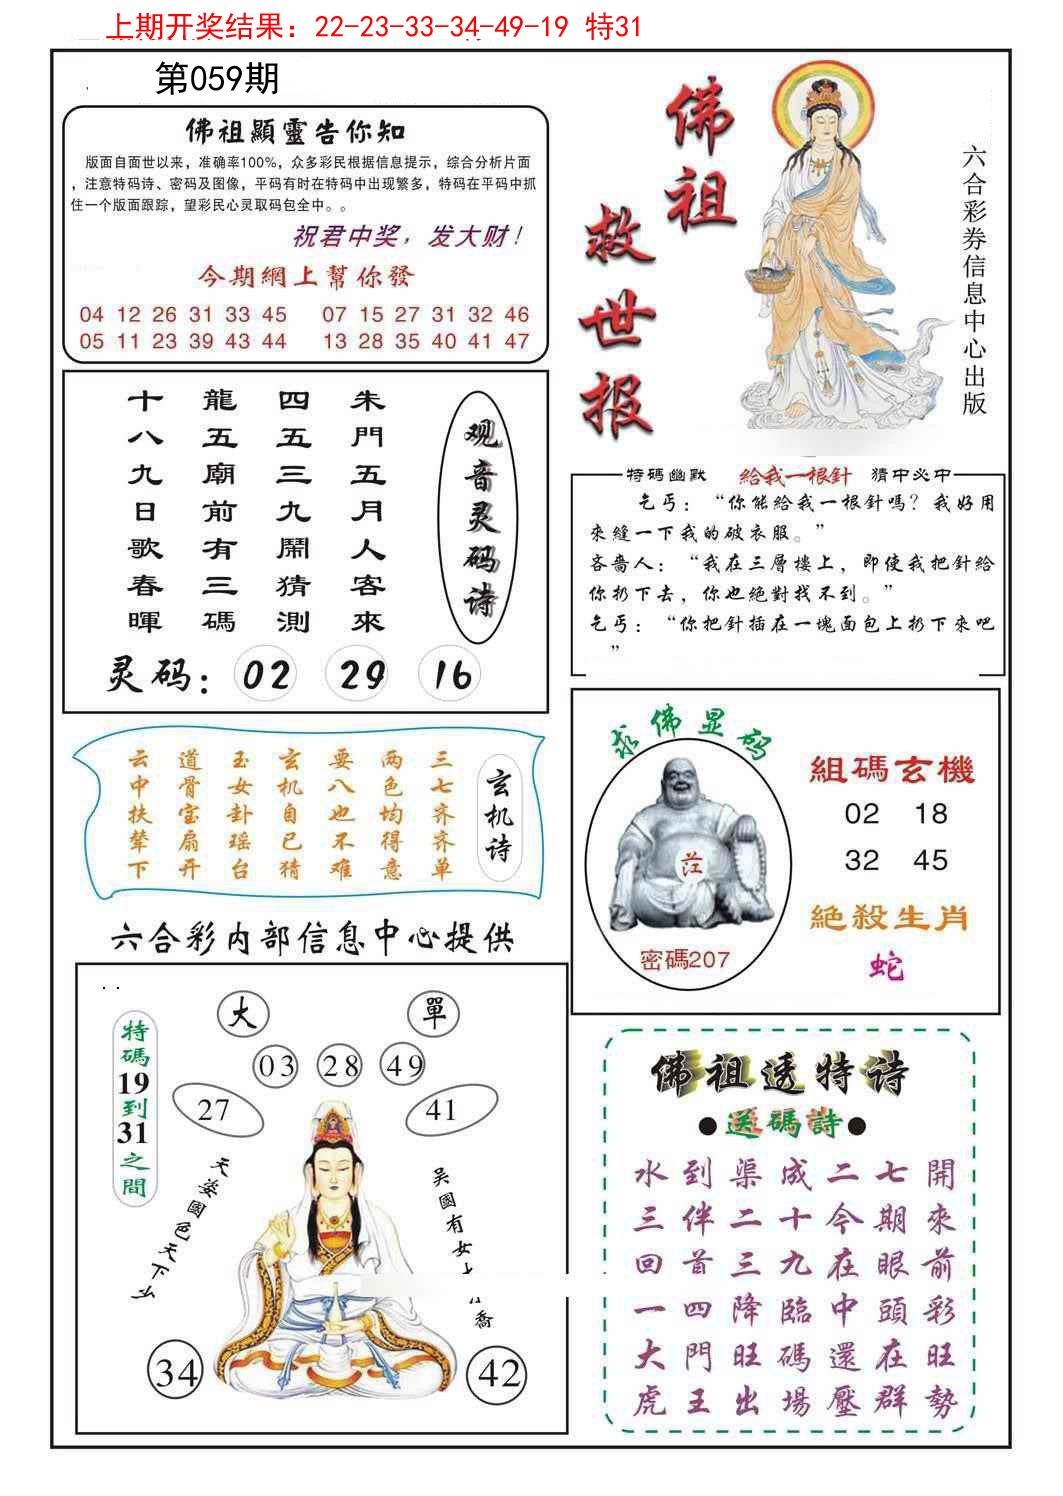 上期开奖结果：22-23-33-34-49-19 特31
第059期
佛祖顯靈告你知
版面自面世以来，准确率100%，众多彩民根据信息提示，综合分析片面
，注意特码诗、密码及图像，平码有时在特码中出现繁多，特码在平码中抓
住一个版面跟踪，望彩民心灵取码包全中。。
祝君中奖，发大财！
今期網上幫你發
04 12 26 31 33 45 07 15 27 31 32 46
05 11 23 39 43 44 13 28 35 40 41 47
佛祖
救世报
六合彩券信息中心出版
观音灵码诗
朱門五月人客來
四五三九鬧猜測
龍五廟前有三碼
十八九日歌春暉
灵码：02 29 16
特碼幽默 給我一根針 猜中必中
乞丐：“你能給我一根針嗎？我好用
來縫一下我的破衣服。”
吝嗇人：“我在三層樓上，即使我把針給
你扔下去，你也絕對找不到。”
乞丐：“你把針插在一塊面包上扔下來吧
”
玄机诗
三七齐齐单
两色均得意
要八也不难
玄机自已猜
玉女卦瑶台
道骨宝扇开
云中扶辇下
求佛显码
密碼207
組碼玄機
02 18
32 45
絕殺生肖
蛇
六合彩内部信息中心提供
特碼19到31之間
大 單
03 28 49
27 41
天姿國色天下
吴國有女
喬
34 42
佛祖透特诗
●送碼詩●
水到渠成二七開
三伴二十今期來
回首三九在眼前
一四降臨中頭彩
大門旺碼還在旺
虎王出場壓群勢